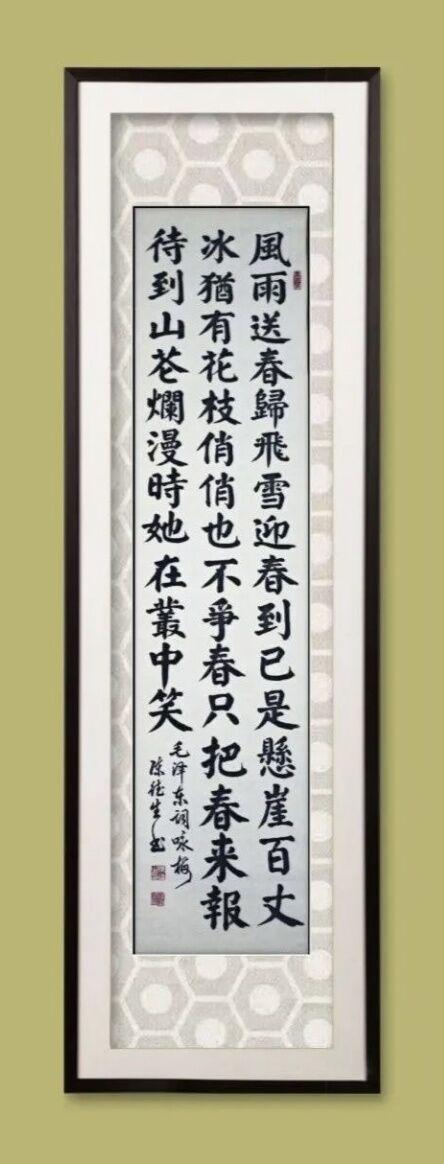 風雨送春歸飛雪迎春到已是懸崖百丈
冰猶有花枝俏俏也不爭春只把春来報
待到山芲爛漫時她在叢中笑
毛泽东詞咏梅
陈德生书